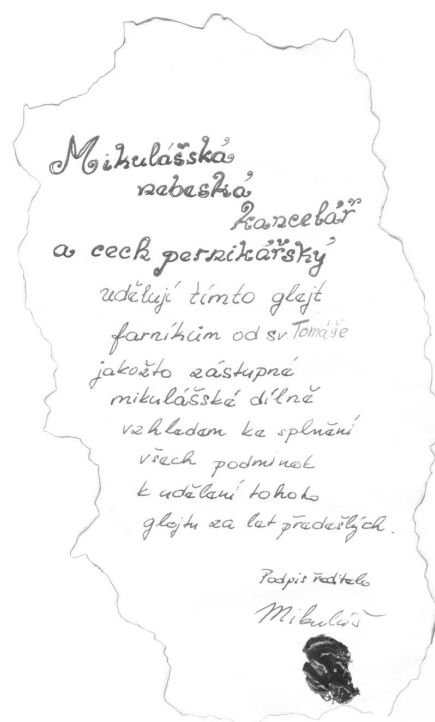 Mikulášská
nebeská
kancelář
a cech pernikářský
udělují tímto glejt
farníkům od sv. Tomáše
jakožto zástupné
mikulášské dílně
vzhledem ke splnění
všech podmínek
k udělení tohoto
glejtu za let předešlých.
Podpis ředitele
Mikuláš